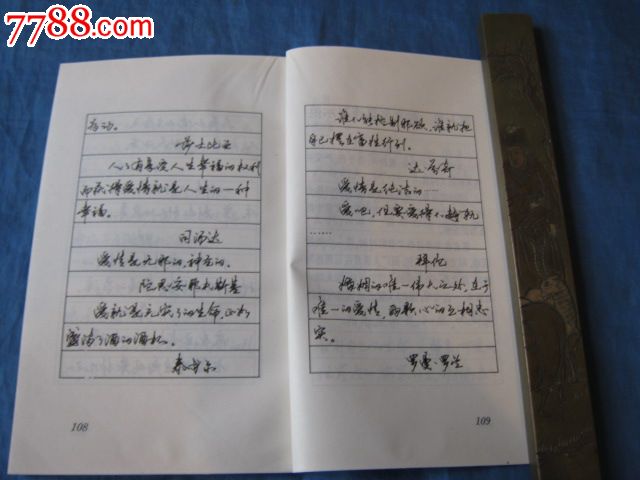 7788.com
有功。
莎士比亚
人人有享受人生幸福的权利
而获得爱情就是人生的一种
幸福。
司汤达
爱情是无邪的，神圣的。
陀思妥耶夫斯基
爱就是充实了的生命，正如
盛满了酒的酒杯。
泰戈尔
108
谁不能抵制邪欲，谁就把
自己摆在畜牲行列。
达·芬奇
爱情是纯洁的…
爱吧，但要爱得不越轨
……
拜伦
婚姻的唯一伟大之处，在于
唯一的爱情，两颗心的互相忠
实。
罗曼·罗兰
109
7788.com